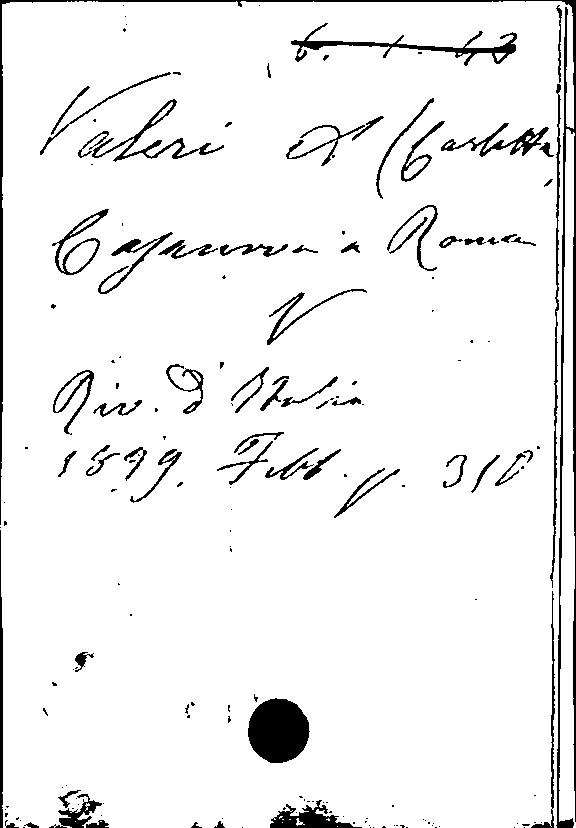 6. 1. 43
Valeri A (Carletta,
Casanova a Roma
V
Riv. d'Italia
1899. Febb. p. 310